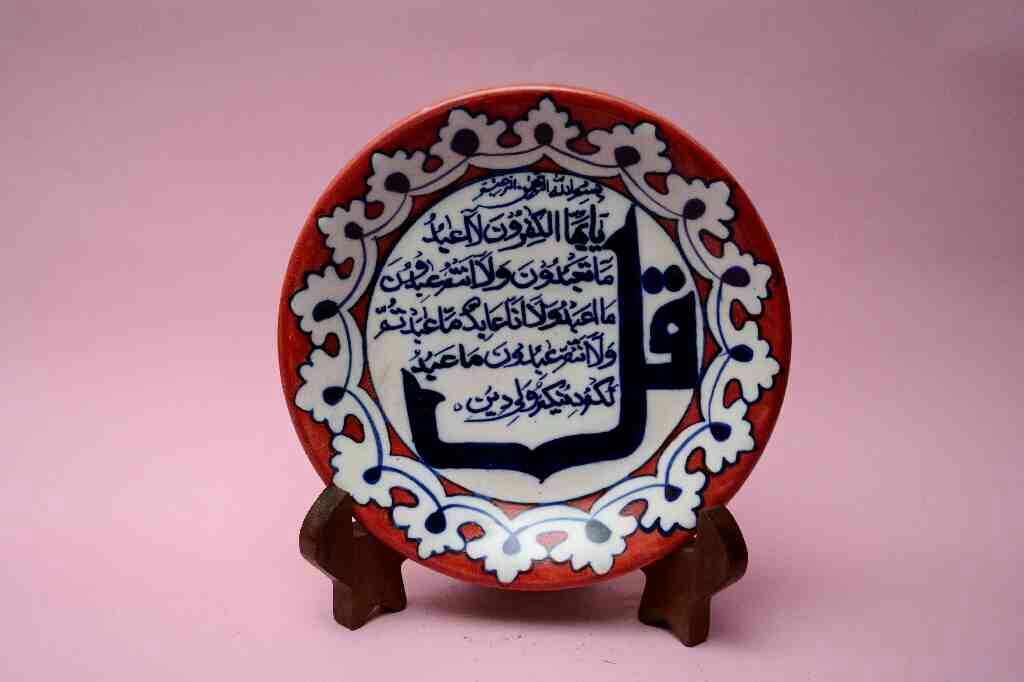 بسم الله الرحمن الرحيم
قل
يايها الكفرون لا اعبد
ما تعبدون ولا انتم عبدون
ما اعبد ولا انا عابد ما عبدتم
ولا انتم عبدون ما عبد
لكم دينكم ولي دين